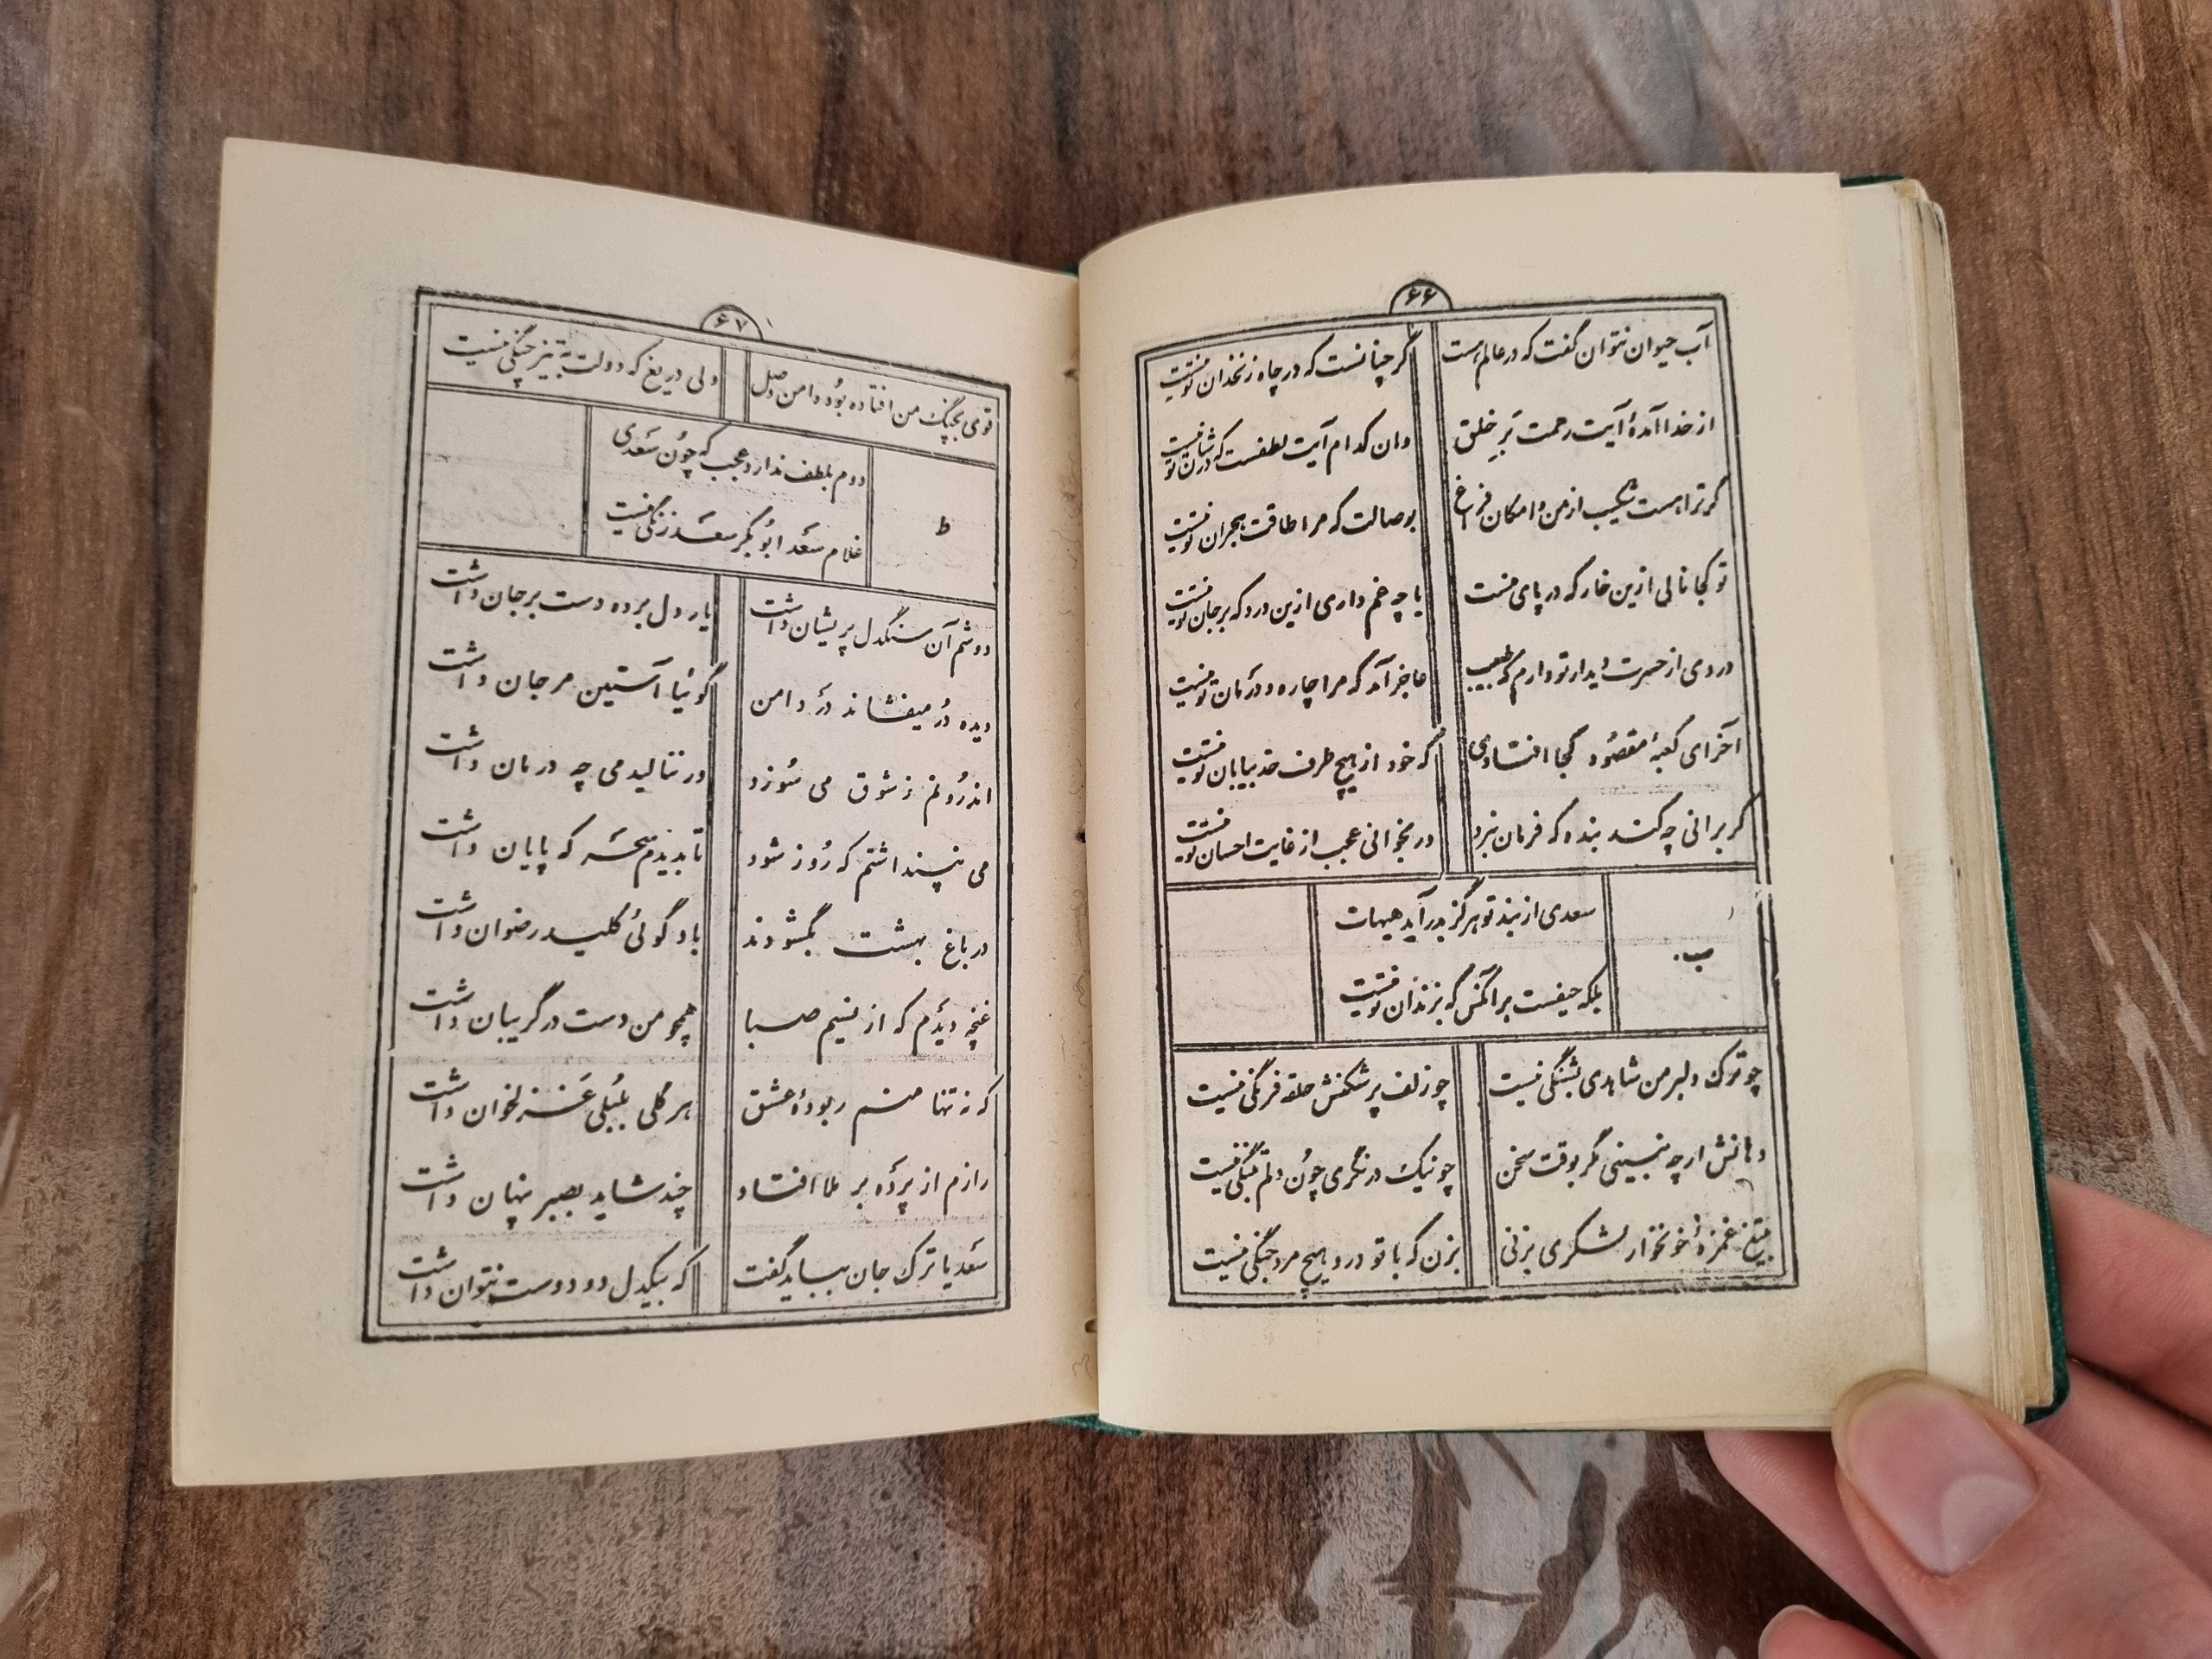 ۶۶
آب حیوان نتوان گفت که در عالم هست
گر چنانست که در چاه زنخدان تو نیست
از خدا آمدهٔ آیت رحمت بر خلق
وان کدام آیت لطفست که در شان تو نیست
گر ترا هست شکیب از من و امکان فراغ
بوصالت که مرا طاقت هجران تو نیست
تو کجا نالی ازین خار که در پای منست
یا چه غم داری ازین درد که بر جان تو نیست
دردی از حسرت دیدار تو دارم که طبیب
عاجز آمد که مرا چاره و درمان تو نیست
آخر ای کعبهٔ مقصود کجا افتادی
که خود از هیچ طرف حد بیابان تو نیست
گر برانی چه کند بنده که فرمان نبرد
در بخوانی عجب از غایت احسان تو نیست
ب
سعدی از بند تو هرگز بدر آید هیهات
بلکه حیفست بر آنکس که بزندان تو نیست
چو ترک دلبر من شاهدی بشنگی نیست
چو زلف پر شکنش حلقه فرنگی نیست
دهانش ار چه نبینی مگر بوقت سخن
چو نیک در نگری چون دلم بتنگی نیست
بتیغ غمزهٔ خونخوار لشکری بزنی
بزن که با تو در و هیچ مرد جنگی نیست
۶۷
قوی بچنگ من افتاده بود دامن وصل
ولی دریغ که دولت به تیز چنگی نیست
ط
دوم بلطف ندارد عجب که چون سعدی
غلام سعد ابوبکر سعد زنگی نیست
دوشم آن سنگدل پریشان داشت
یار دل برده دست بر جان داشت
دیده در میفشاند در دامن
گوئیا آستین مرجان داشت
اندرونم ز شوق می سوزد
ور ننالیدمی چه درمان داشت
می نپنداشتم که روز شود
تا بدیدم سحر که پایان داشت
در باغ بهشت بگشودند
باد گوئی کلید رضوان داشت
غنچه دیدم که از نسیم صبا
همچو من دست در گریبان داشت
که نه تنها منم ربودهٔ عشق
هر گلی بلبلی غزلخوان داشت
رازم از پرده بر ملا افتاد
چند شاید بصبر پنهان داشت
سعدیا ترک جان بباید گفت
که بیکدل دو دوست نتوان داشت